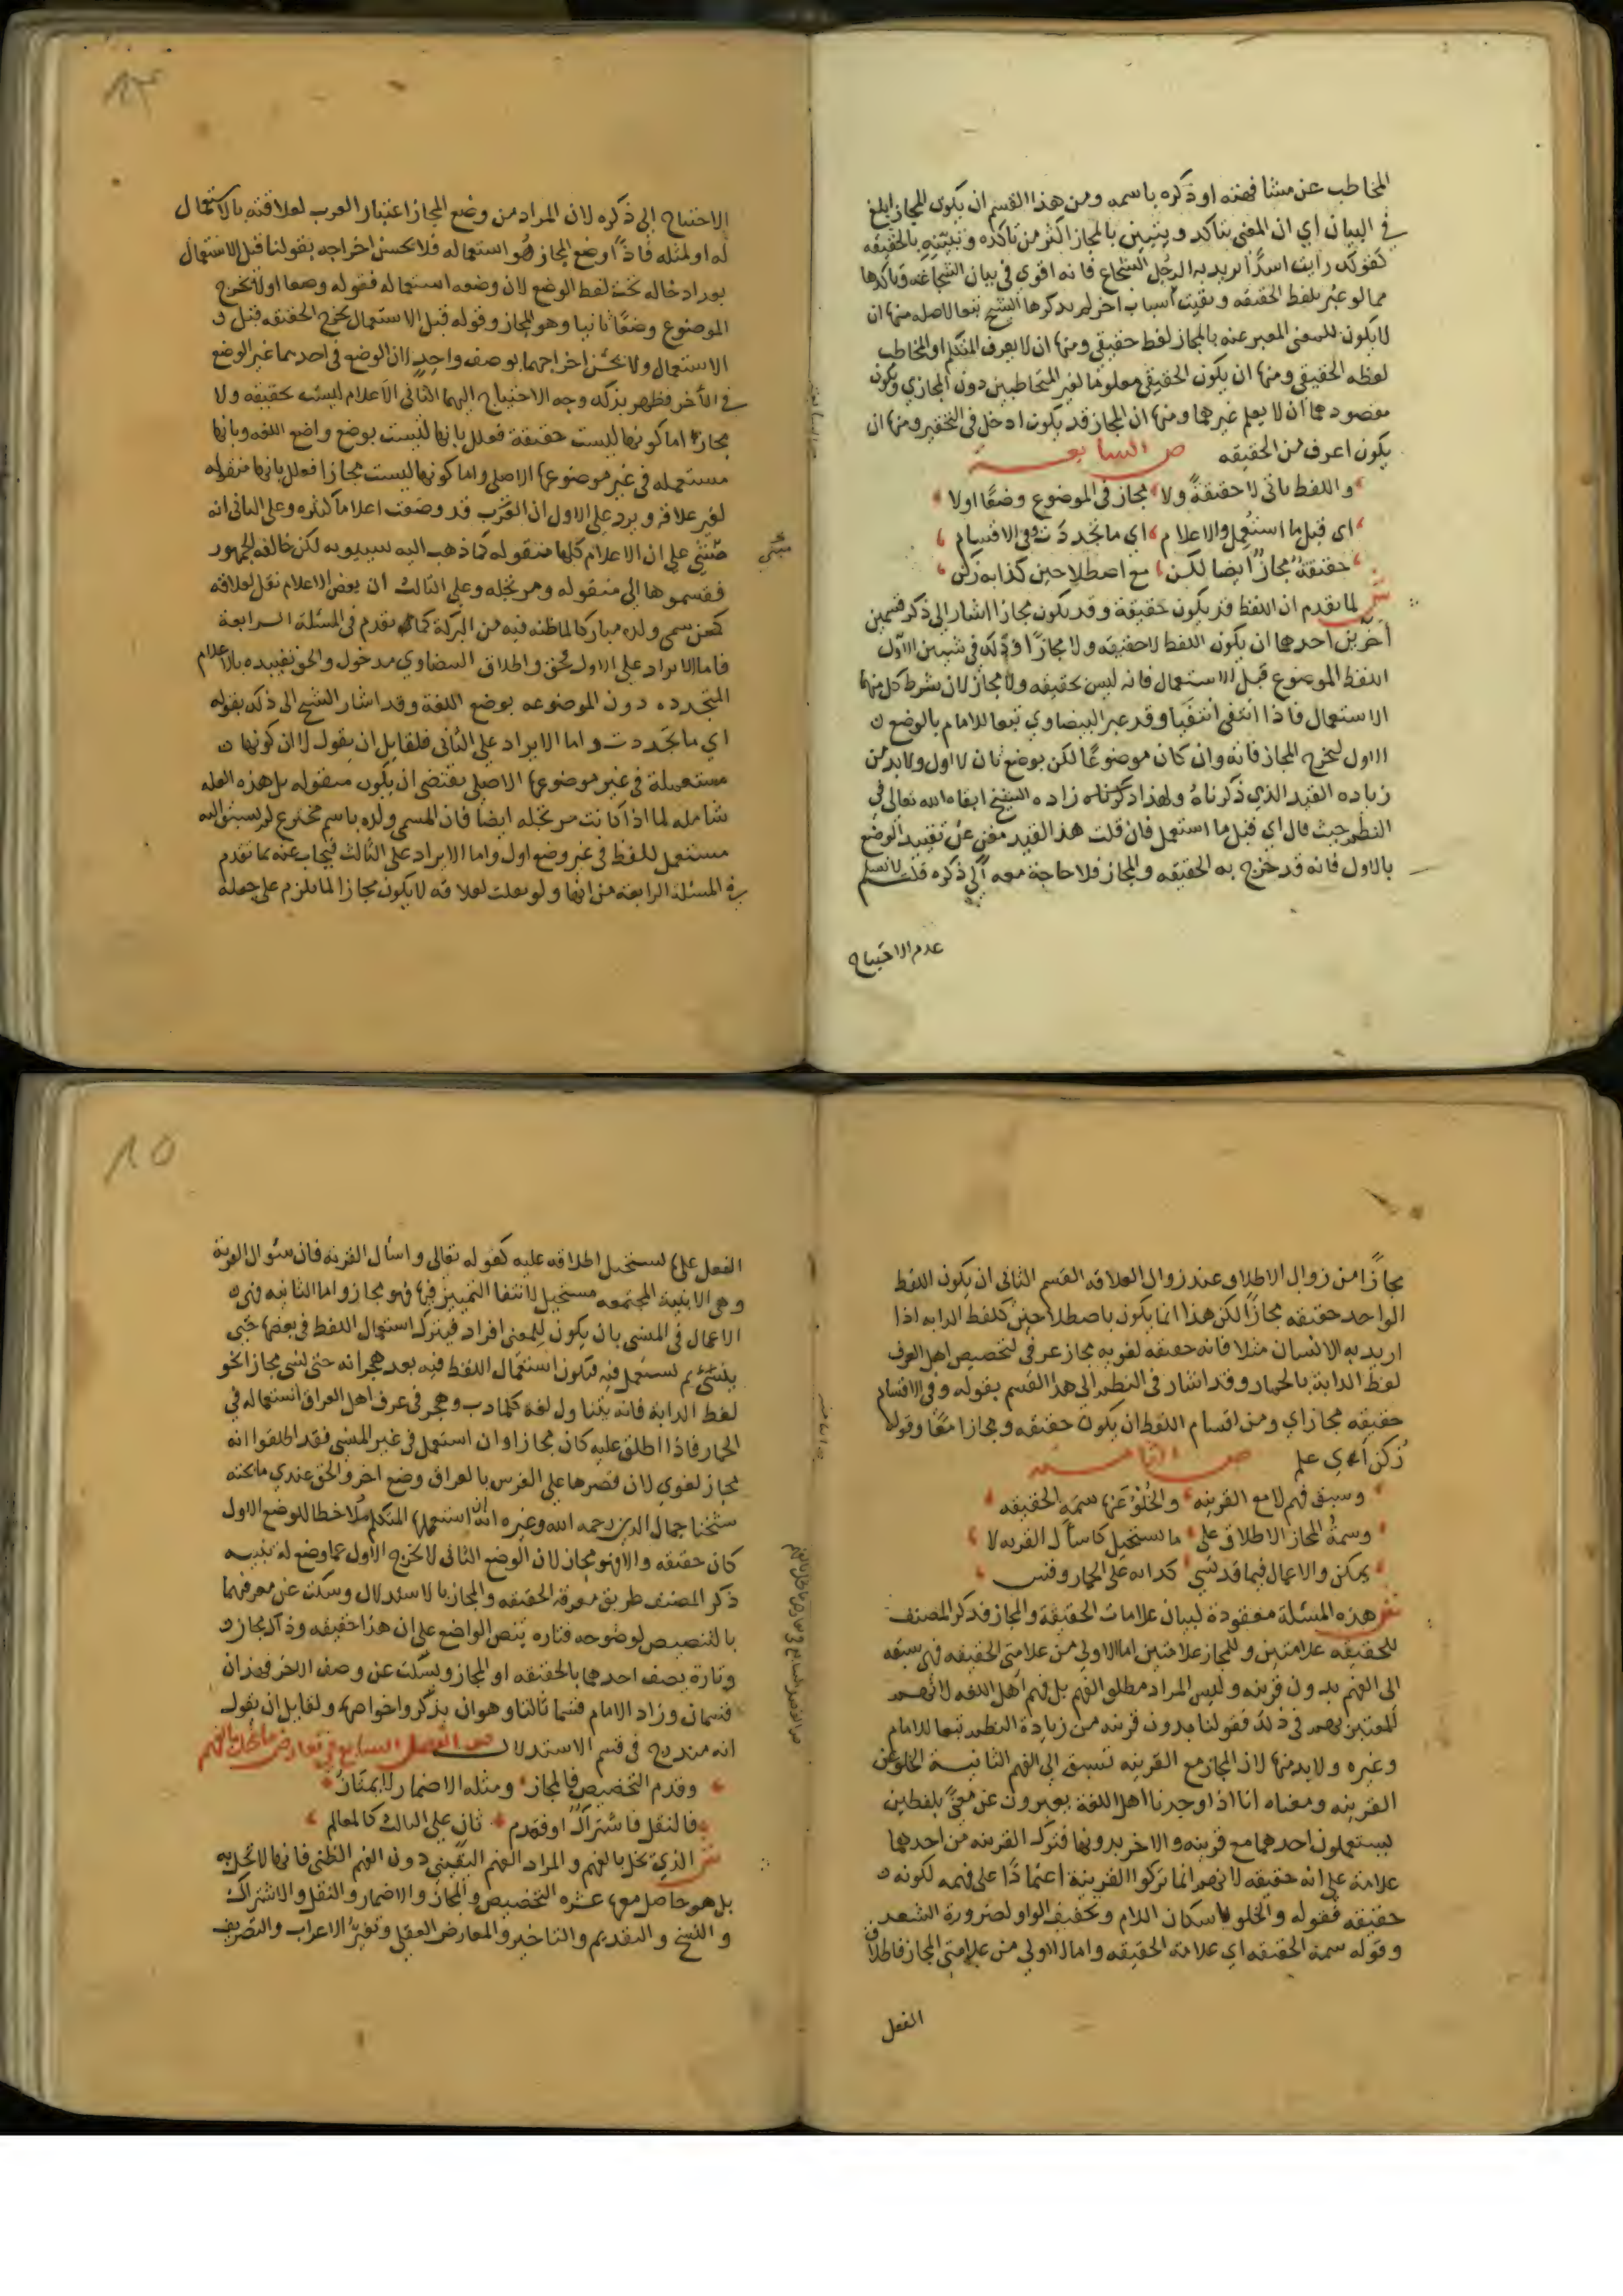 المخاطب عن مشافهته او ذكره باسمه ومن هذا القسم ان يكون المجاز ابلغ
في البيان اي ان المعنى يتاكد ويتبين بالمجاز اكثر من تاكده وتبينه بالحقيقه
كقولك رايت اسدًا تريد به الرجل الشجاع فانه اقوى في بيان الشجاعه وتاكدها
مما لو عبر بلفظ الحقيقه وبقيت اسباب اخر لم يذكرها الشيخ تبعا لاصله منها ان
لا يكون للمعنى المعبر عنه بالمجاز لفظ حقيقي ومنها ان لا يعرف المتكلم او المخاطب
لفظه الحقيقي ومنها ان يكون الحقيقي معلوما لغير المتخاطبين دون المجازي ويكون
مقصودهما ان لا يعلم غيرهما ومنها ان المجاز قد يكون ادخل في التحقير ومنها ان
يكون اعرف من الحقيقه ص السابعة
واللفظ ياتي لا حقيقةً ولا مجاز في الموضوع وضعًا اولا
اي قبل ما استُعمل والاعلام اي ما تجددت وفي الاقسام
حقيقةٌ مجازٌ ايضا لكن مع اصطلاحين كدابه زكن
ش لما تقدم ان اللفظ قد يكون حقيقة وقد يكون مجازا اشار الى ذكر قسمين
اخرين احدهما ان يكون اللفظ لا حقيقه ولا مجازًا وذلك في شيئين الاول
اللفظ الموضوع قبل الاستعمال فانه ليس بحقيقه ولا مجاز لان شرط كل منهما
الاستعمال فاذا انتفى انتفيا وقد عبر البيضاوي تبعا للامام بالوضع
الاول ليخرج المجاز فانه وان كان موضوعًا لكن بوضع ثان لا اول ولا بد من
زياده القيد الذي ذكرناه ولهذا زاده الشيخ ابقاه الله تعالى في
النظم حيث قال اي قبل ما استعمل فان قلت هذا القيد مغن عن تقييد الوضع
بالاول فانه قد خرج به الحقيقه والمجاز فلا حاجة معه الى ذكره قلت لا نسلم
عدم الاحتياج
الاحتياج الى ذكره لان المراد من وضع المجاز اعتبار العرب لعلاقته بالاستعمال
له او لمثله فاذًا وضع المجاز هو استعماله فلا يحسن اخراجه بقولنا قبل الاستعمال
بعد ادخاله تحت لفظ الوضع لان وضعه استعماله فقوله وضعا اولا يخرج
الموضوع وضعًا ثانيا وهو المجاز وقوله قبل الاستعمال يخرج الحقيقه قبل
الاستعمال ولا يحسن اخراجهما بوصف واحدٍ لان الوضع في احدهما غير الوضع
في الاخر فظهر بذلك وجه الاحتياج اليهما الثاني الاعلام ليست بحقيقه ولا
مجاز اما كونها ليست حقيقة فعلل بانها ليست بوضع واضع اللغه وبانها
مستعمله في غير موضوعها الاصلي واما كونها ليست مجازا فعلل بانها منقوله
لغير علاقه ويرد على الاول ان العرب قد وضعت اعلاما كثيره وعلى الثاني انه
مبني على ان الاعلام كلها منقوله كما ذهب اليه سيبويه لكن خالفه الجمهور
فقسموها الى منقوله ومرتجله وعلى الثالث ان بعض الاعلام نقل لعلاقه
كمن سمى ولده مباركا لما ظنه فيه من البركة كما تقدم في المسئلة الرابعة
فاما الايراد على الاول فحق واطلاق البيضاوي مدخول والحق تقييده بالاعلام
المتجدده دون الموضوعه بوضع اللغة وقد اشار الشيخ الى ذلك بقوله
اي ما تجددت واما الايراد على الثاني فلقايل ان يقول لا ان كونها
مستعملة في غير موضوعها الاصلي يقتضي ان يكون منقوله بل هذه العله
شامله لما اذا كانت مرتجله ايضا فان المسمى ولده باسم مخترع لم يسبق اليه
مستعمل للفظ في غير وضع اول واما الايراد على الثالث فيجاب عنه بما تقدم
في المسئلة الرابعة من انها ولو نقلت لعلاقه لا يكون مجازا لما يلزم على جعله
مجازًا من زوال الاطلاق عند زوال العلاقه القسم الثاني ان يكون اللفظ
الواحد حقيقه مجازًا لكن هذا انما يكون باصطلاحين كلفظ الدابه اذا
اريد به الانسان مثلا فانه حقيقه لغويه مجاز عرفي لتخصيص اهل العرف
لفظ الدابة بالحمار وقد اشار في النظم الى هذا القسم بقوله وفي الاقسام
حقيقه مجاز اي ومن اقسام اللفظ ان يكون حقيقه ومجازا معًا وقوله
زكن اي علم ص الثامنة
وسبق فهم لا مع القرينه والخُلْوُ عنها سمة الحقيقه
وسمةُ المجاز الاطلاق على ما يستحيل كاسأل القريه لا
يمكن والاعمال فيما قد نُسي كدابه على الحمار وقس
ش هذه المسئلة معقودة لبيان علامات الحقيقة والمجاز فذكر المصنف
للحقيقه علامتين وللمجاز علامتين اما الاولى من علامتي الحقيقه فهي سبقه
الى الفهم بدون قرينه وليس المراد مطلق الفهم بل فهم اهل اللغه لانهم
المعتبرين في ذلك فقولنا بدون قرينه من زيادة النظم تبعا للامام
وغيره ولا بد منها لان المجاز مع القرينه تسبق الى الفهم الثانية الخلو عن
القرينه ومعناه انا اذا وجدنا اهل اللغة يعبرون عن معنىً بلفظين
يستعملون احدهما مع قرينه والاخر بدونها فترك القرينه من احدهما
علامة على انه حقيقه لانهم انما تركوا القرينة اعتمادًا على فهمه لكونه
حقيقه فقوله والخلو باسكان اللام وتخفيف الواو لضرورة الشعر
وقوله سمة الحقيقه اي علامة الحقيقه واما الاولى من علامتي المجاز فاطلاق
الفعل
الفعل على ما يستحيل اطلاقه عليه كقوله تعالى واسأل القريه فان سؤال القرية
وهي الابنية المجتمعه مستحيل لانتفا التمييز فيها فهو مجاز واما الثانيه فهي
الاعمال في المنسي بان يكون للمعنى افراد فيترك استعمال اللفظ في بعضها حتى
ينسى ثم يستعمل فيه فيكون استعمال اللفظ فيه بعد هجرانه حتى نسي مجازا نحو
لفظ الدابة فانه يتناول لغة كلما دب وهجر في عرف اهل العراق استعماله في
الحمار فاذا اطلق عليه كان مجازا وان استعمل في غير المنسي فقد اطلقوا انه
مجاز لغوي لان قصرها على الفرس بالعراق وضع اخر والحق عندي ما بحثه
شيخنا جمال الدين رحمه الله وغيره انه ان استعملها المتكلم ملاحظا للوضع الاول
كان حقيقه والا فهو مجاز لان الوضع الثاني لا يخرج الاول عما وضع له تنبيه
ذكر المصنف طريق معرفة الحقيقه والمجاز بالاستدلال وسكت عن معرفتهما
بالتنصيص لوضوحه فتاره ينص الواضع على ان هذا حقيقه وذاك مجاز
وتارة يصف احدهما بالحقيقه او المجاز ويسكت عن وصف الاخر فهذان
قسمان وزاد الامام قسما ثالثا وهو ان يذكروا خواصها ولقايل ان يقول
انه مندرج في قسم الاستدلال ص الفصل السابع في تعارض ما يخل بالفهم
وقدم التخصيص فالمجاز ومثله الاضمار لا يمتاز
فالنقل فاشتراكٌ او فقدم ثانٍ على الثالث كالمعالم
ش الذي يخل بالفهم والمراد الفهم اليقيني دون الفهم الظني فانها لا تخل به
بل هو حاصل معها عشره التخصيص والمجاز والاضمار والنقل والاشتراك
والنسخ والتقديم والتاخير والمعارض العقلي وتغيّر الاعراب والتصريف